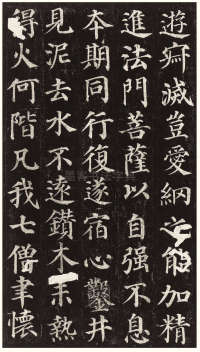 遊疴滅豈愛網之能加精
進法門菩薩以自强不息
本期同行復遂宿心鑿井
見泥去水不遠鑽木未熱
得火何階凡我七僧聿懷